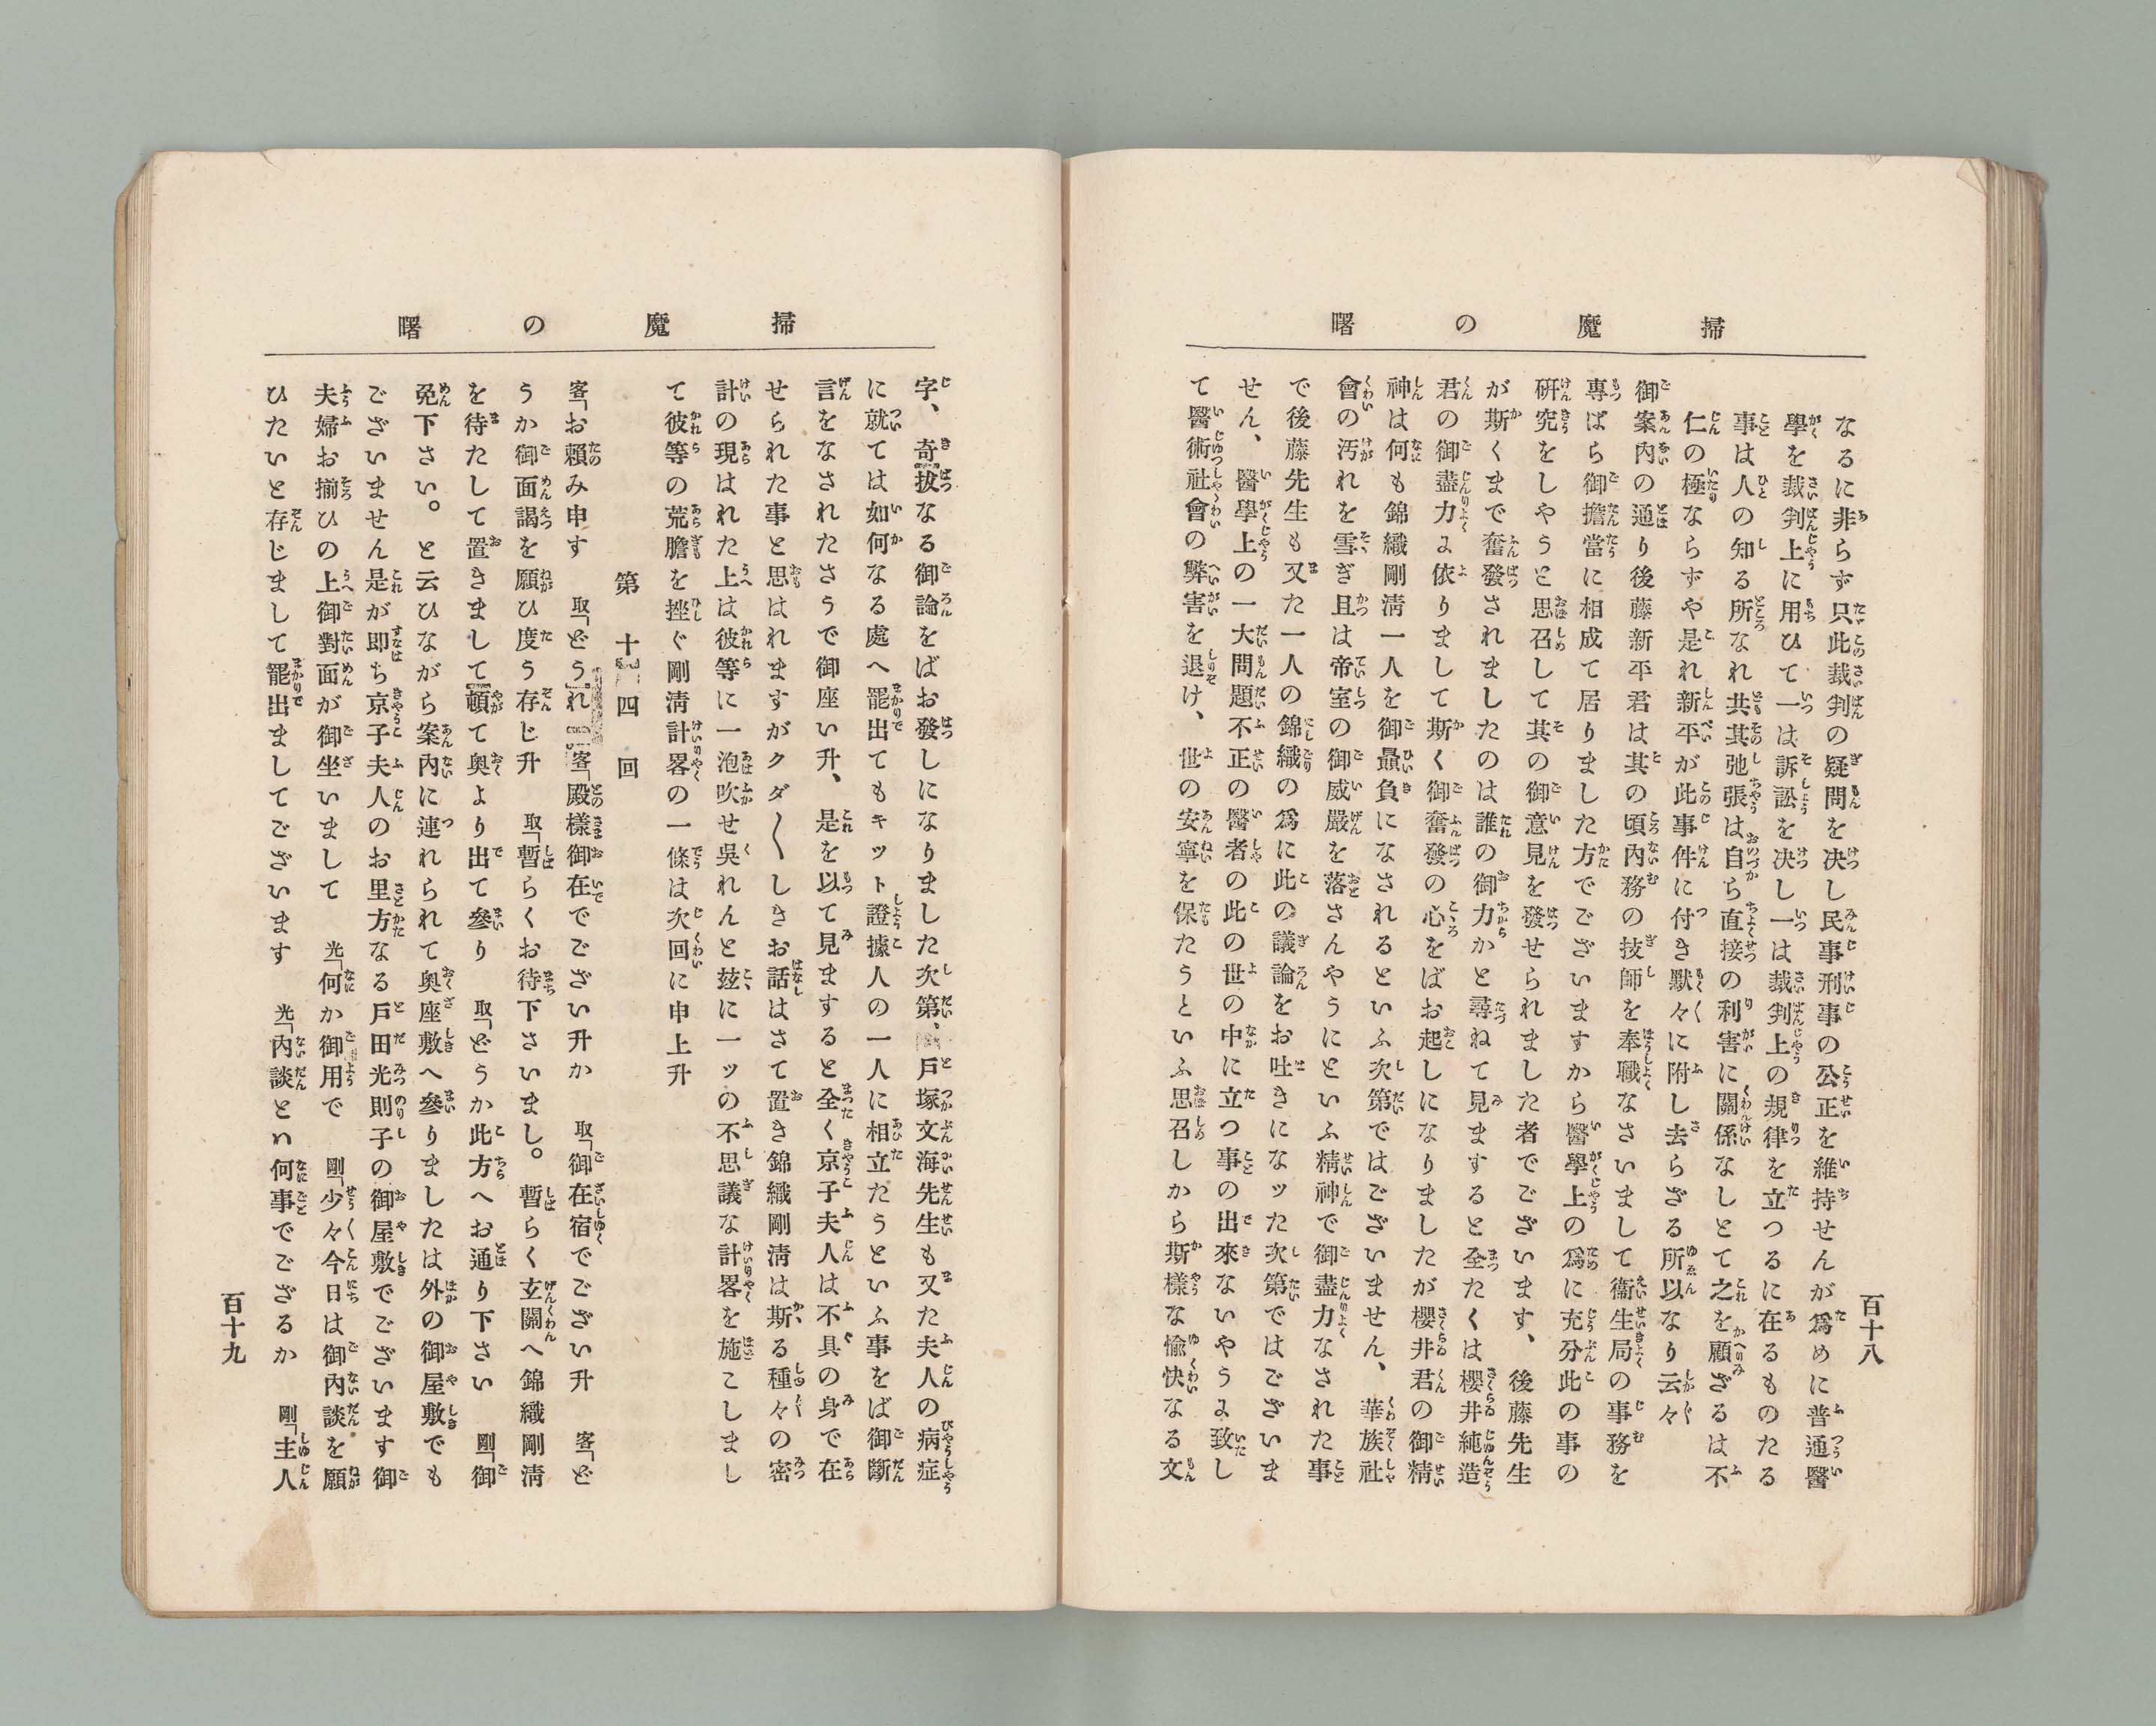 掃魔の曙
百十八
なるに非らず只此裁判の疑問を决し民事刑事の公正を維持せんが爲めに普通醫
學を裁判上に用ひて一は訴訟を决し一は裁判上の規律を立つるに在るものたる
事は人の知る所なれ共其弛張は自ら直接の利害に關係なしとて之を顧ざるは不
仁の極ならずや是れ新平が此事件に付き默々に附し去らざる所以なり云々
御案內の通り後藤新平君は其の頃內務の技師を奉職なさいまして衞生局の事務を
專ばら御擔當に相成て居りました方でございますから醫學上の爲に充分此の事の
硏究をしやうと思召して其の御意見を發せられました者でございます、後藤先生
が斯くまで奮發されましたのは誰の御力かと尋ねて見ますると全たくは櫻井純造
君の御盡力ょ依りまして斯く御奮發の心をばお起しになりましたが櫻井君の御精
神は何も錦織剛淸一人を御贔負になされるといふ次第ではございません、華族社
會の汚れを雪ぎ且は帝室の御威嚴を落さんやうにといふ精神で御盡力なされた事
で後藤先生も又た一人の錦織の爲に此の議論をお吐きになッた次第ではございま
せん、醫學上の一大問題不正の醫者の此の世の中に立つ事の出來ないやうょ致し
て醫術社會の弊害を退け、世の安寧を保たうといふ思召しから斯樣な愉快なる文
掃魔の曙
字、奇拔なる御論をばお發しになりました次第、戶塚文海先生も又た夫人の病症
に就ては如何なる處へ罷出てもキット證據人の一人に相立たうといふ事をば御斷
言をなされたさうで御座い升、是を以て見ますると全く京子夫人は不具の身で在
せられた事と思はれますがクダ〱しきお話はさて置き錦織剛淸は斯る種々の密
計の現はれた上は彼等に一泡吹せ吳れんと玆に一ッの不思議な計畧を施こしまし
て彼等の荒膽を挫ぐ剛淸計畧の一條は次回に申上升
第十四回
客「お賴み申す　取「どうれ　客「殿樣御在でござい升か　取「御在宿でござい升　客「ど
うか御面謁を願ひ度う存じ升　取「暫らくお待下さいまし。暫らく玄關へ錦織剛淸
を待たして置きまして頓て奧より出て參り　取「どうか此方へお通り下さい　剛「御
免下さい。と云ひながら案內に連れられて奧座敷へ參りましたは外の御屋敷でも
ございません是が卽ち京子夫人のお里方なる戶田光則子の御屋敷でございます御
夫婦お揃ひの上御對面が御坐いまして　光「何か御用で　剛「少々今日は御內談を願
ひたいと存じまして罷出ましてございます　光「內談とハ何事でござるか　剛「主人
百十九